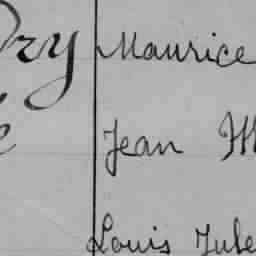 Maurice
Jean M
Louis Jule